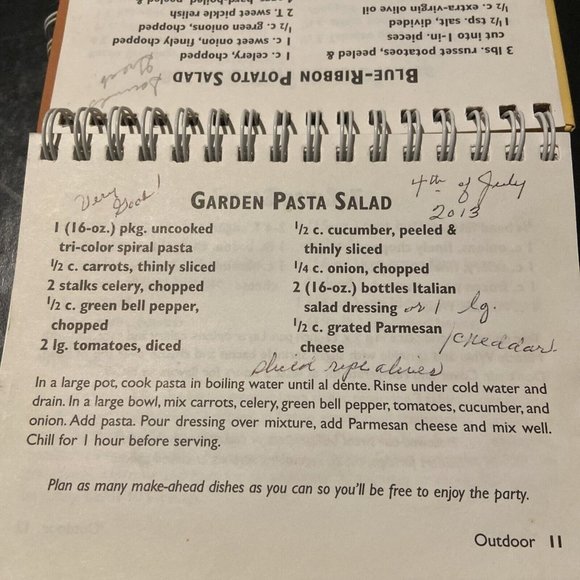 BLUE-RIBBON POTATO SALAD
3 lbs. russet potatoes, peeled &
cut into 1-in. pieces
1 1/2 tsp. salt, divided
1/2 c. extra-virgin olive oil
1 c. celery, chopped
1 c. sweet onion, finely chopped
1/2 c. green onions, chopped
2 T. sweet pickle relish
GARDEN PASTA SALAD
Very
Good!
4th of July
2013
1 (16-oz.) pkg. uncooked
tri-color spiral pasta
1/2 c. carrots, thinly sliced
2 stalks celery, chopped
1/2 c. green bell pepper,
chopped
2 lg. tomatoes, diced
1/2 c. cucumber, peeled &
thinly sliced
1/4 c. onion, chopped
2 (16-oz.) bottles Italian
salad dressing or 1 lg.
1/2 c. grated Parmesan
cheese /cheddar
sliced ripe olives
In a large pot, cook pasta in boiling water until al dente. Rinse under cold water and
drain. In a large bowl, mix carrots, celery, green bell pepper, tomatoes, cucumber, and
onion. Add pasta. Pour dressing over mixture, add Parmesan cheese and mix well.
Chill for 1 hour before serving.
Plan as many make-ahead dishes as you can so you'll be free to enjoy the party.
Outdoor 11